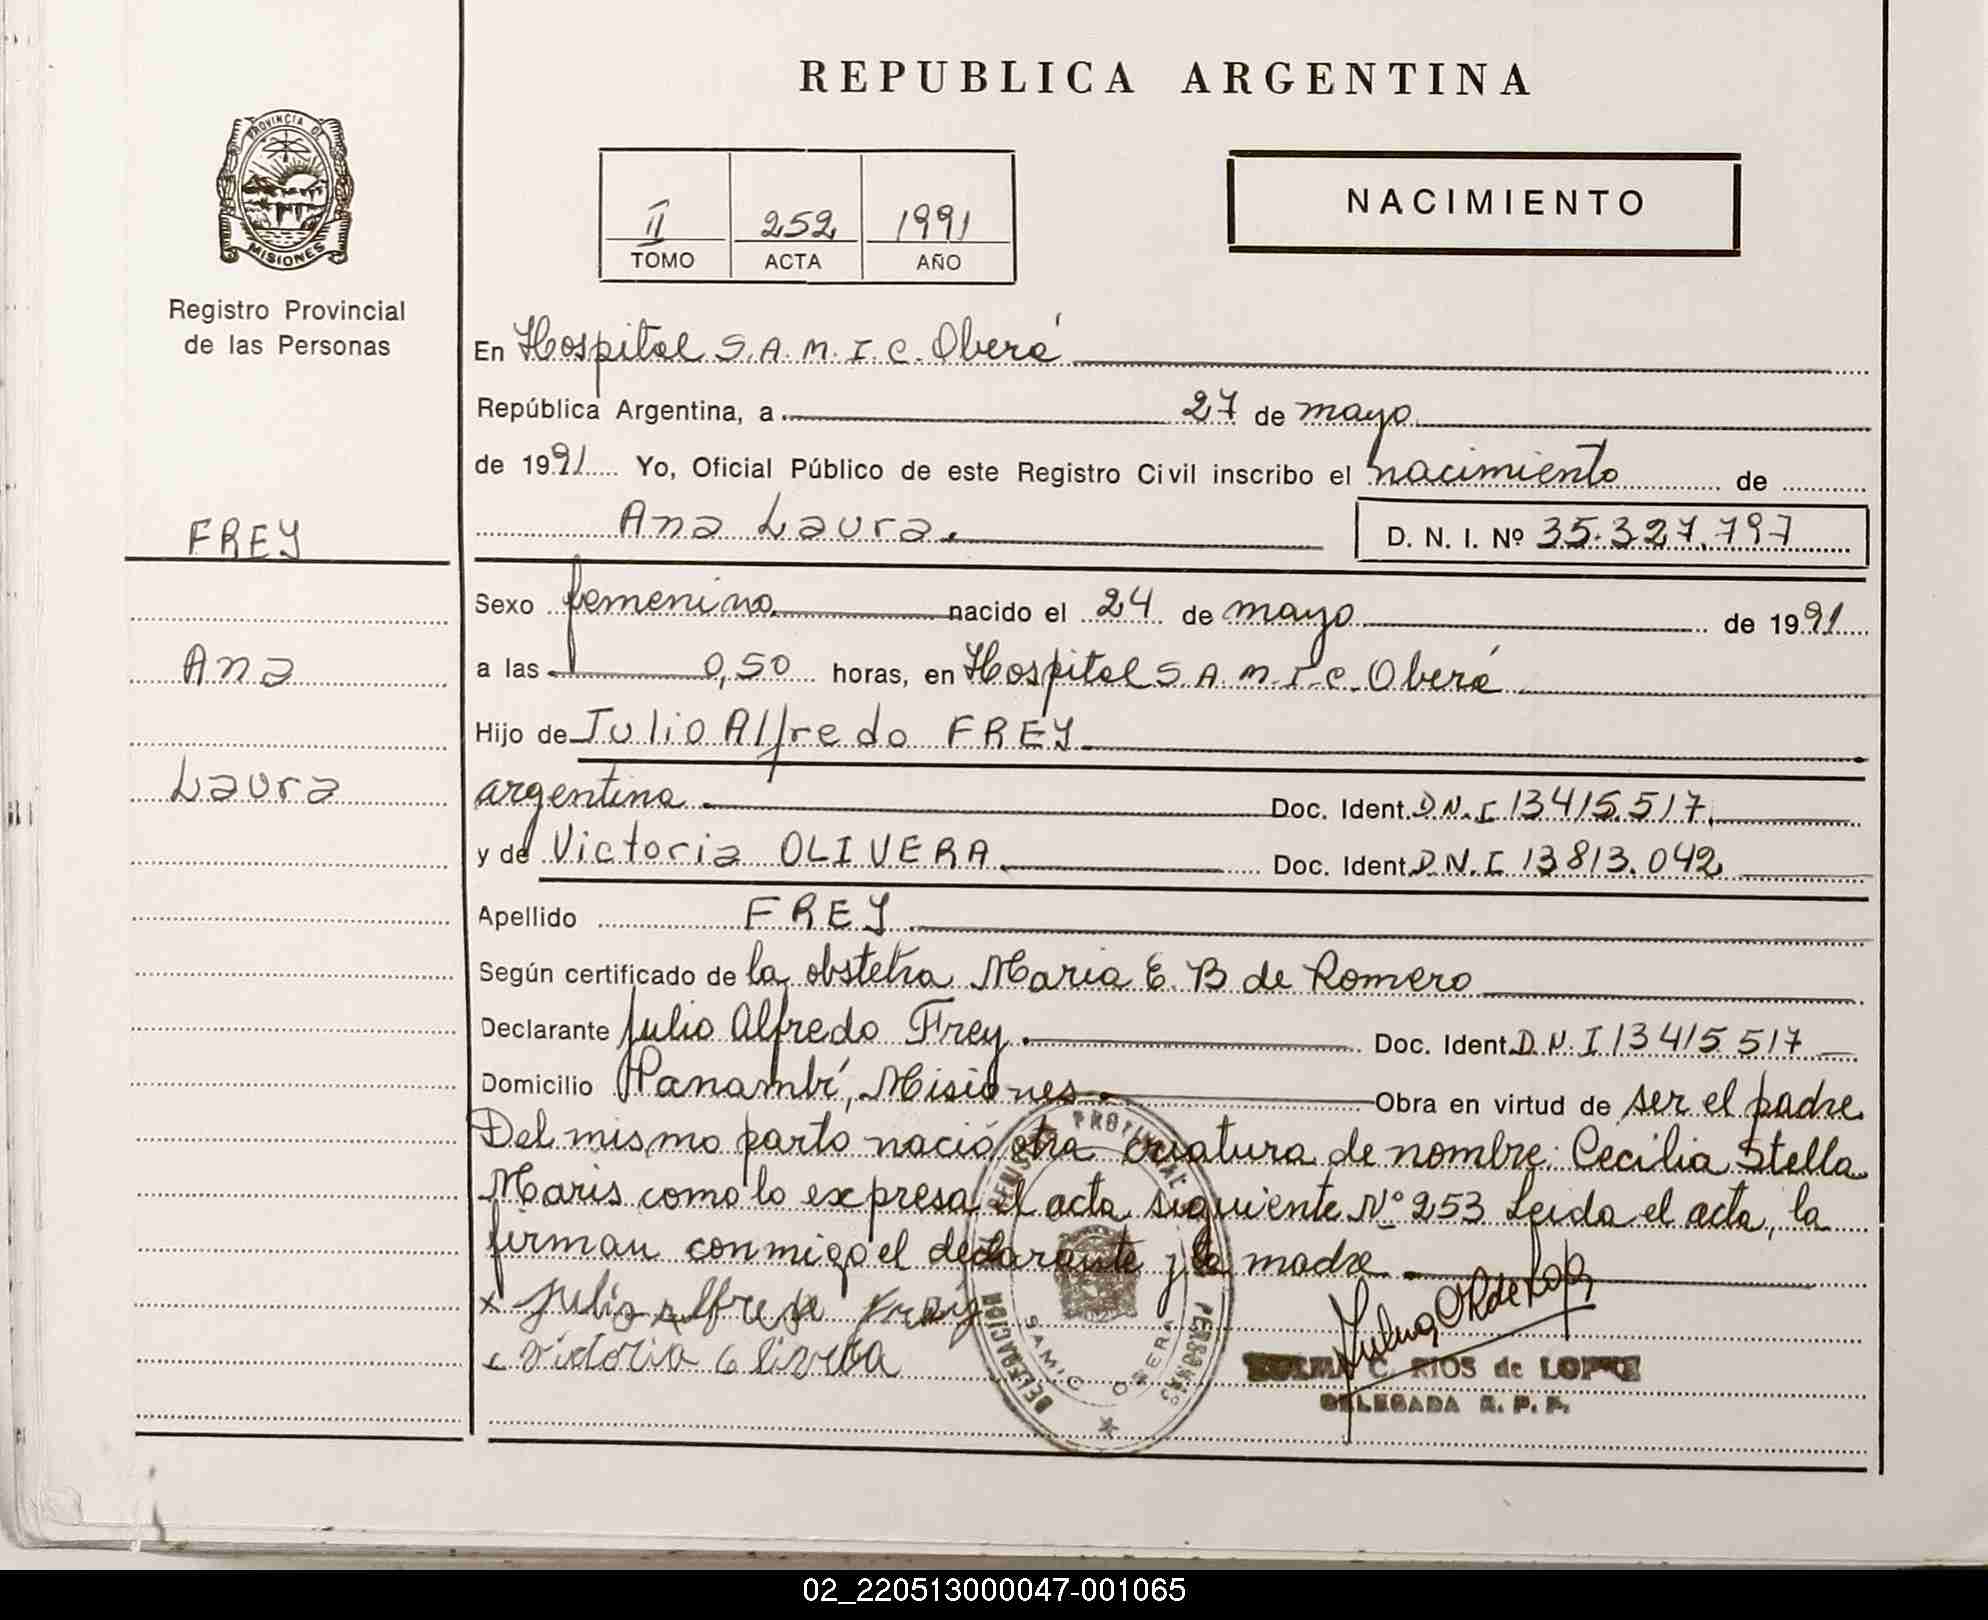 REPUBLICA ARGENTINA
PROVINCIA DE
MISIONES
Registro Provincial
de las Personas
II 252 1991
TOMO ACTA AÑO
NACIMIENTO
En Hospital S.A.M.I.C. Oberá
República Argentina, a 27 de mayo
de 1991 Yo, Oficial Público de este Registro Civil inscribo el nacimiento de
Ana Laura. D. N. I. Nº 35.327.797
FREY
Sexo femenino nacido el 24 de mayo de 1991
Ana
a las 0,50 horas, en Hospital S.A.M.I.C. Oberá
Hijo de Julio Alfredo FREY
Laura
argentina Doc. Ident. D.N.I 13415.517
y de Victoria OLIVERA Doc. Ident. D.N.I. 13813.042
Apellido FREY
Según certificado de la obstetra Maria E. B de Romero
Declarante Julio Alfredo Frey. Doc. Ident. D.N.I 13415517
Domicilio Panambí, Misiones. Obra en virtud de ser el padre
Del mismo parto nació otra criatura de nombre: Cecilia Stella
Maris como lo expresa el acta siguiente Nº 253 Leida el acta, la
firman conmigo el declarante y la madre
x Julio Alfredo Frey
Victoria Olivera
PROVINCIAL
PERSONAS
DELEGACION
SAMIC OBERA
C. RIOS de LOPEZ
DELEGADA R. P. P.
02_220513000047-001065